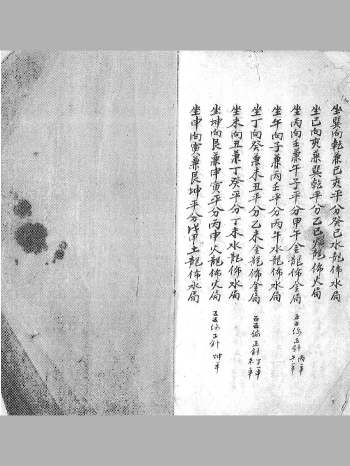 坐巽向乾兼巳亥平分癸巳水龍佈水局
坐巳向亥兼巽乾平分乙巳火龍佈火局
坐丙向壬兼午子平分甲午金龍佈金局
坐午向子兼丙壬平分丙午水龍佈水局
坐丁向癸兼未丑平分乙未金龍佈金局
坐未向丑兼丁癸平分丁未水龍佈水局
坐坤向艮兼申寅平分丙申火龍佈火局
坐申向寅兼艮坤平分戊申土龍佈水局